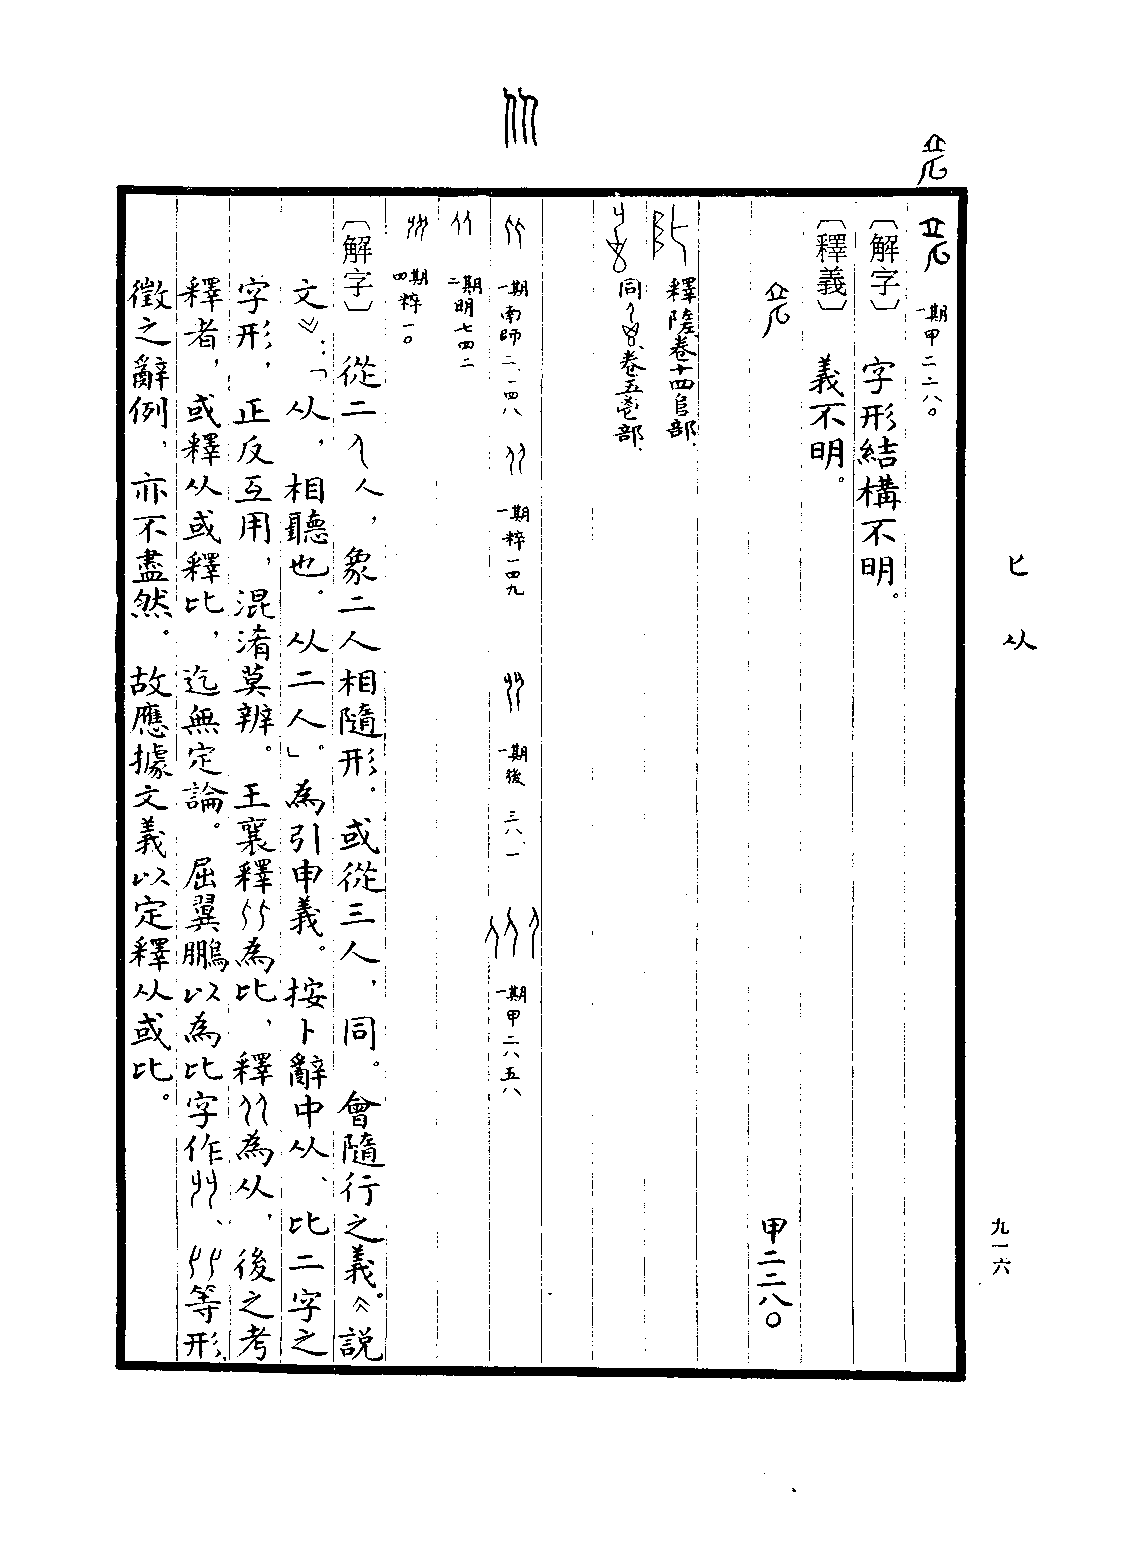 匕 从
九一六
一期甲二二八〇
〔解字〕 字形結構不明。
〔釋義〕 義不明。
甲二二八〇
釋陸卷十四𨸏部.
同卷五壴部.
一期南師二、一四八
一期粹一四九
一期後三八、一
一期甲二八五八
二期明七四二
四期粹一〇
〔解字〕 從二人,象二人相隨形.或從三人,同。會隨行之義。《說
文》:「从,相聽也.从二人。」為引申義。按卜辭中从、比二字之
字形,正反互用,混淆莫辨。王襄釋為比,釋為从,後之考
釋者,或釋从或釋比,迄無定論。屈翼鵬以為比字作、等形,
徵之辭例,亦不盡然.故應據文義以定釋从或比。